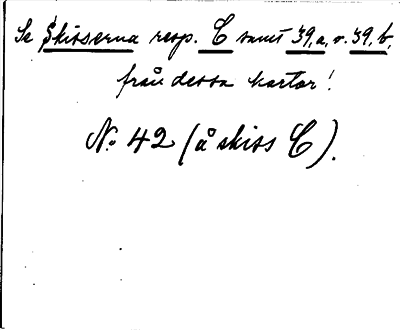 Se Skisserna resp. C samt 39,a, v. 39, b,
från dessa kartor!
No 42 (å skiss C).